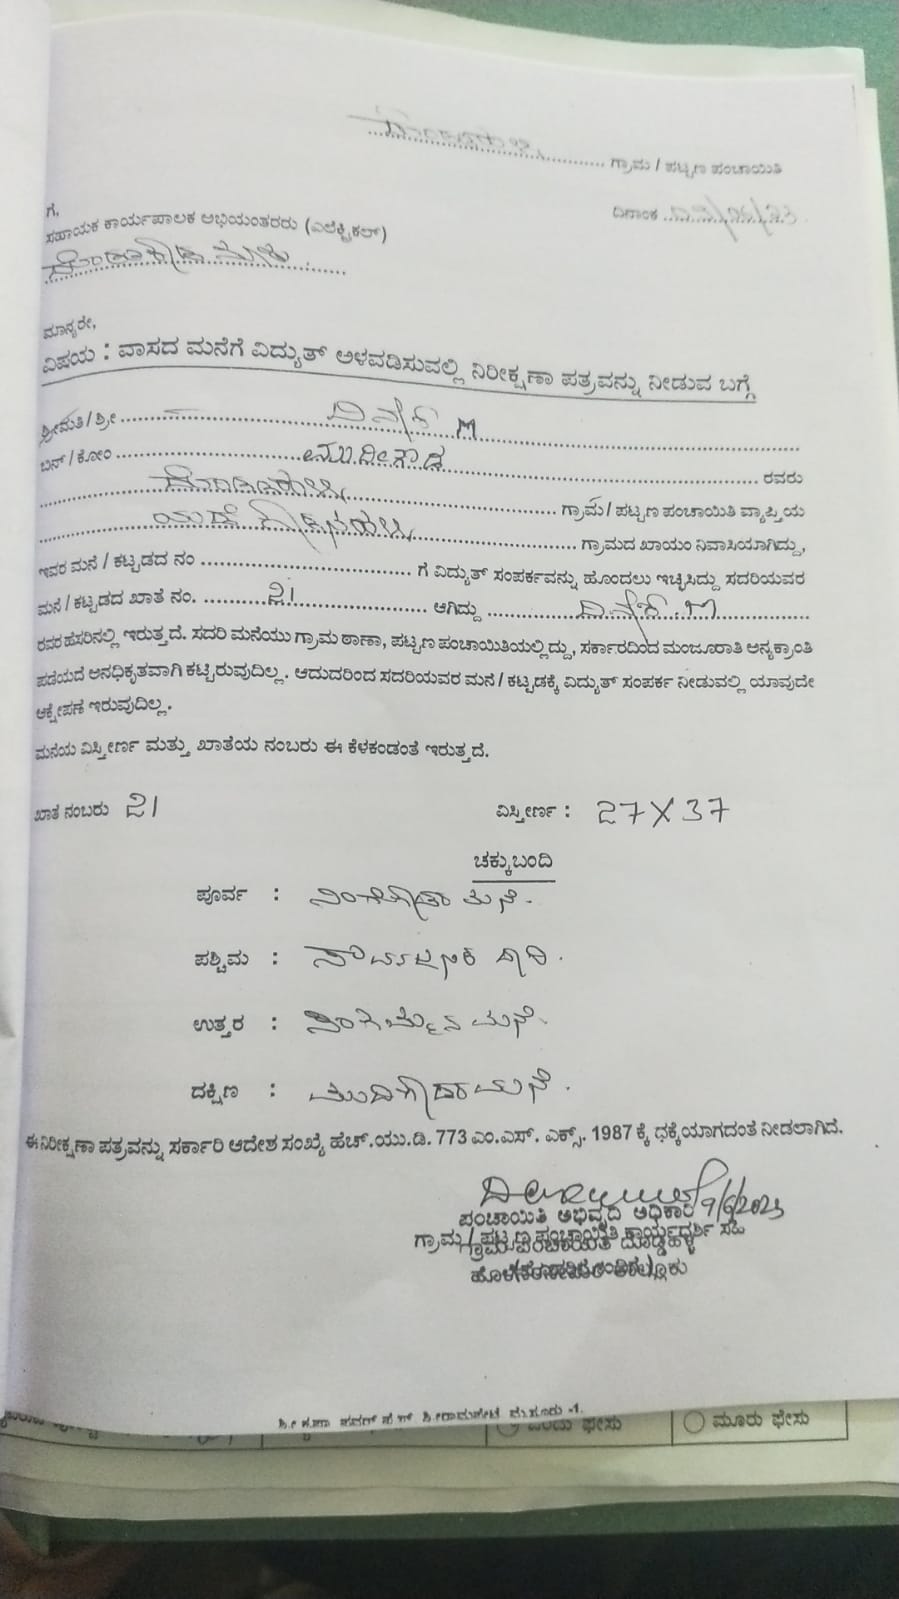 ಗ್ರಾಮ / ಪಟ್ಟಣ ಪಂಚಾಯಿತಿ
ದಿನಾಂಕ
ಗೆ,
ಸಹಾಯಕ ಕಾರ್ಯಪಾಲಕ ಅಭಿಯಂತರರು (ಎಲೆಕ್ಟ್ರಿಕಲ್)
ಮಾನ್ಯರೇ,
ವಿಷಯ : ವಾಸದ ಮನೆಗೆ ವಿದ್ಯುತ್ ಅಳವಡಿಸುವಲ್ಲಿ ನಿರೀಕ್ಷಣಾ ಪತ್ರವನ್ನು ನೀಡುವ ಬಗ್ಗೆ
ಶ್ರೀಮತಿ / ಶ್ರೀ ದಿನೇಶ್ M
ಬಿನ್ / ಕೋಂ ಮುದೀಗೌಡ ರವರು
ಗ್ರಾಮ / ಪಟ್ಟಣ ಪಂಚಾಯಿತಿ ವ್ಯಾಪ್ತಿಯ
ಗ್ರಾಮದ ಖಾಯಂ ನಿವಾಸಿಯಾಗಿದ್ದು,
ಇವರ ಮನೆ / ಕಟ್ಟಡದ ನಂ ಗೆ ವಿದ್ಯುತ್ ಸಂಪರ್ಕವನ್ನು ಹೊಂದಲು ಇಚ್ಛಿಸಿದ್ದು ಸದರಿಯವರ
ಮನೆ / ಕಟ್ಟಡದ ಖಾತೆ ನಂ. 21 ಆಗಿದ್ದು ದಿನೇಶ್ . M
ರವರ ಹೆಸರಿನಲ್ಲಿ ಇರುತ್ತದೆ. ಸದರಿ ಮನೆಯು ಗ್ರಾಮ ಠಾಣಾ, ಪಟ್ಟಣ ಪಂಚಾಯಿತಿಯಲ್ಲಿದ್ದು, ಸರ್ಕಾರದಿಂದ ಮಂಜೂರಾತಿ ಅನ್ಯಕ್ರಾಂತಿ
ಪಡೆಯದೆ ಅನಧಿಕೃತವಾಗಿ ಕಟ್ಟಿರುವುದಿಲ್ಲ. ಆದುದರಿಂದ ಸದರಿಯವರ ಮನೆ / ಕಟ್ಟಡಕ್ಕೆ ವಿದ್ಯುತ್ ಸಂಪರ್ಕ ನೀಡುವಲ್ಲಿ ಯಾವುದೇ
ಆಕ್ಷೇಪಣೆ ಇರುವುದಿಲ್ಲ.
ಮನೆಯ ವಿಸ್ತೀರ್ಣ ಮತ್ತು ಖಾತೆಯ ನಂಬರು ಈ ಕೆಳಕಂಡಂತೆ ಇರುತ್ತದೆ.
ಖಾತೆ ನಂಬರು 21 ವಿಸ್ತೀರ್ಣ : 27 X 37
ಚಕ್ಕುಬಂದಿ
ಪೂರ್ವ : ನಿಂಗೇಗೌಡರ ಮನೆ.
ಪಶ್ಚಿಮ : ಸಾರ್ವಜನಿಕ ದಾರಿ.
ಉತ್ತರ : ಮನೆ.
ದಕ್ಷಿಣ : ಮುದಿಗೌಡರ ಮನೆ.
ಈ ನಿರೀಕ್ಷಣಾ ಪತ್ರವನ್ನು ಸರ್ಕಾರಿ ಆದೇಶ ಸಂಖ್ಯೆ ಹೆಚ್.ಯು.ಡಿ. 773 ಎಂ.ಎಸ್. ಎಕ್ಸ್. 1987 ಕ್ಕೆ ಧಕ್ಕೆಯಾಗದಂತೆ ನೀಡಲಾಗಿದೆ.
9/6/2023
ಪಂಚಾಯಿತಿ ಅಭಿವೃದ್ಧಿ ಅಧಿಕಾರಿ
ಗ್ರಾಮ / ಪಟ್ಟಣ ಪಂಚಾಯಿತಿ ಕಾರ್ಯದರ್ಶಿ ಸಹಿ
ಒಂದು ಫೇಸು ಮೂರು ಫೇಸು